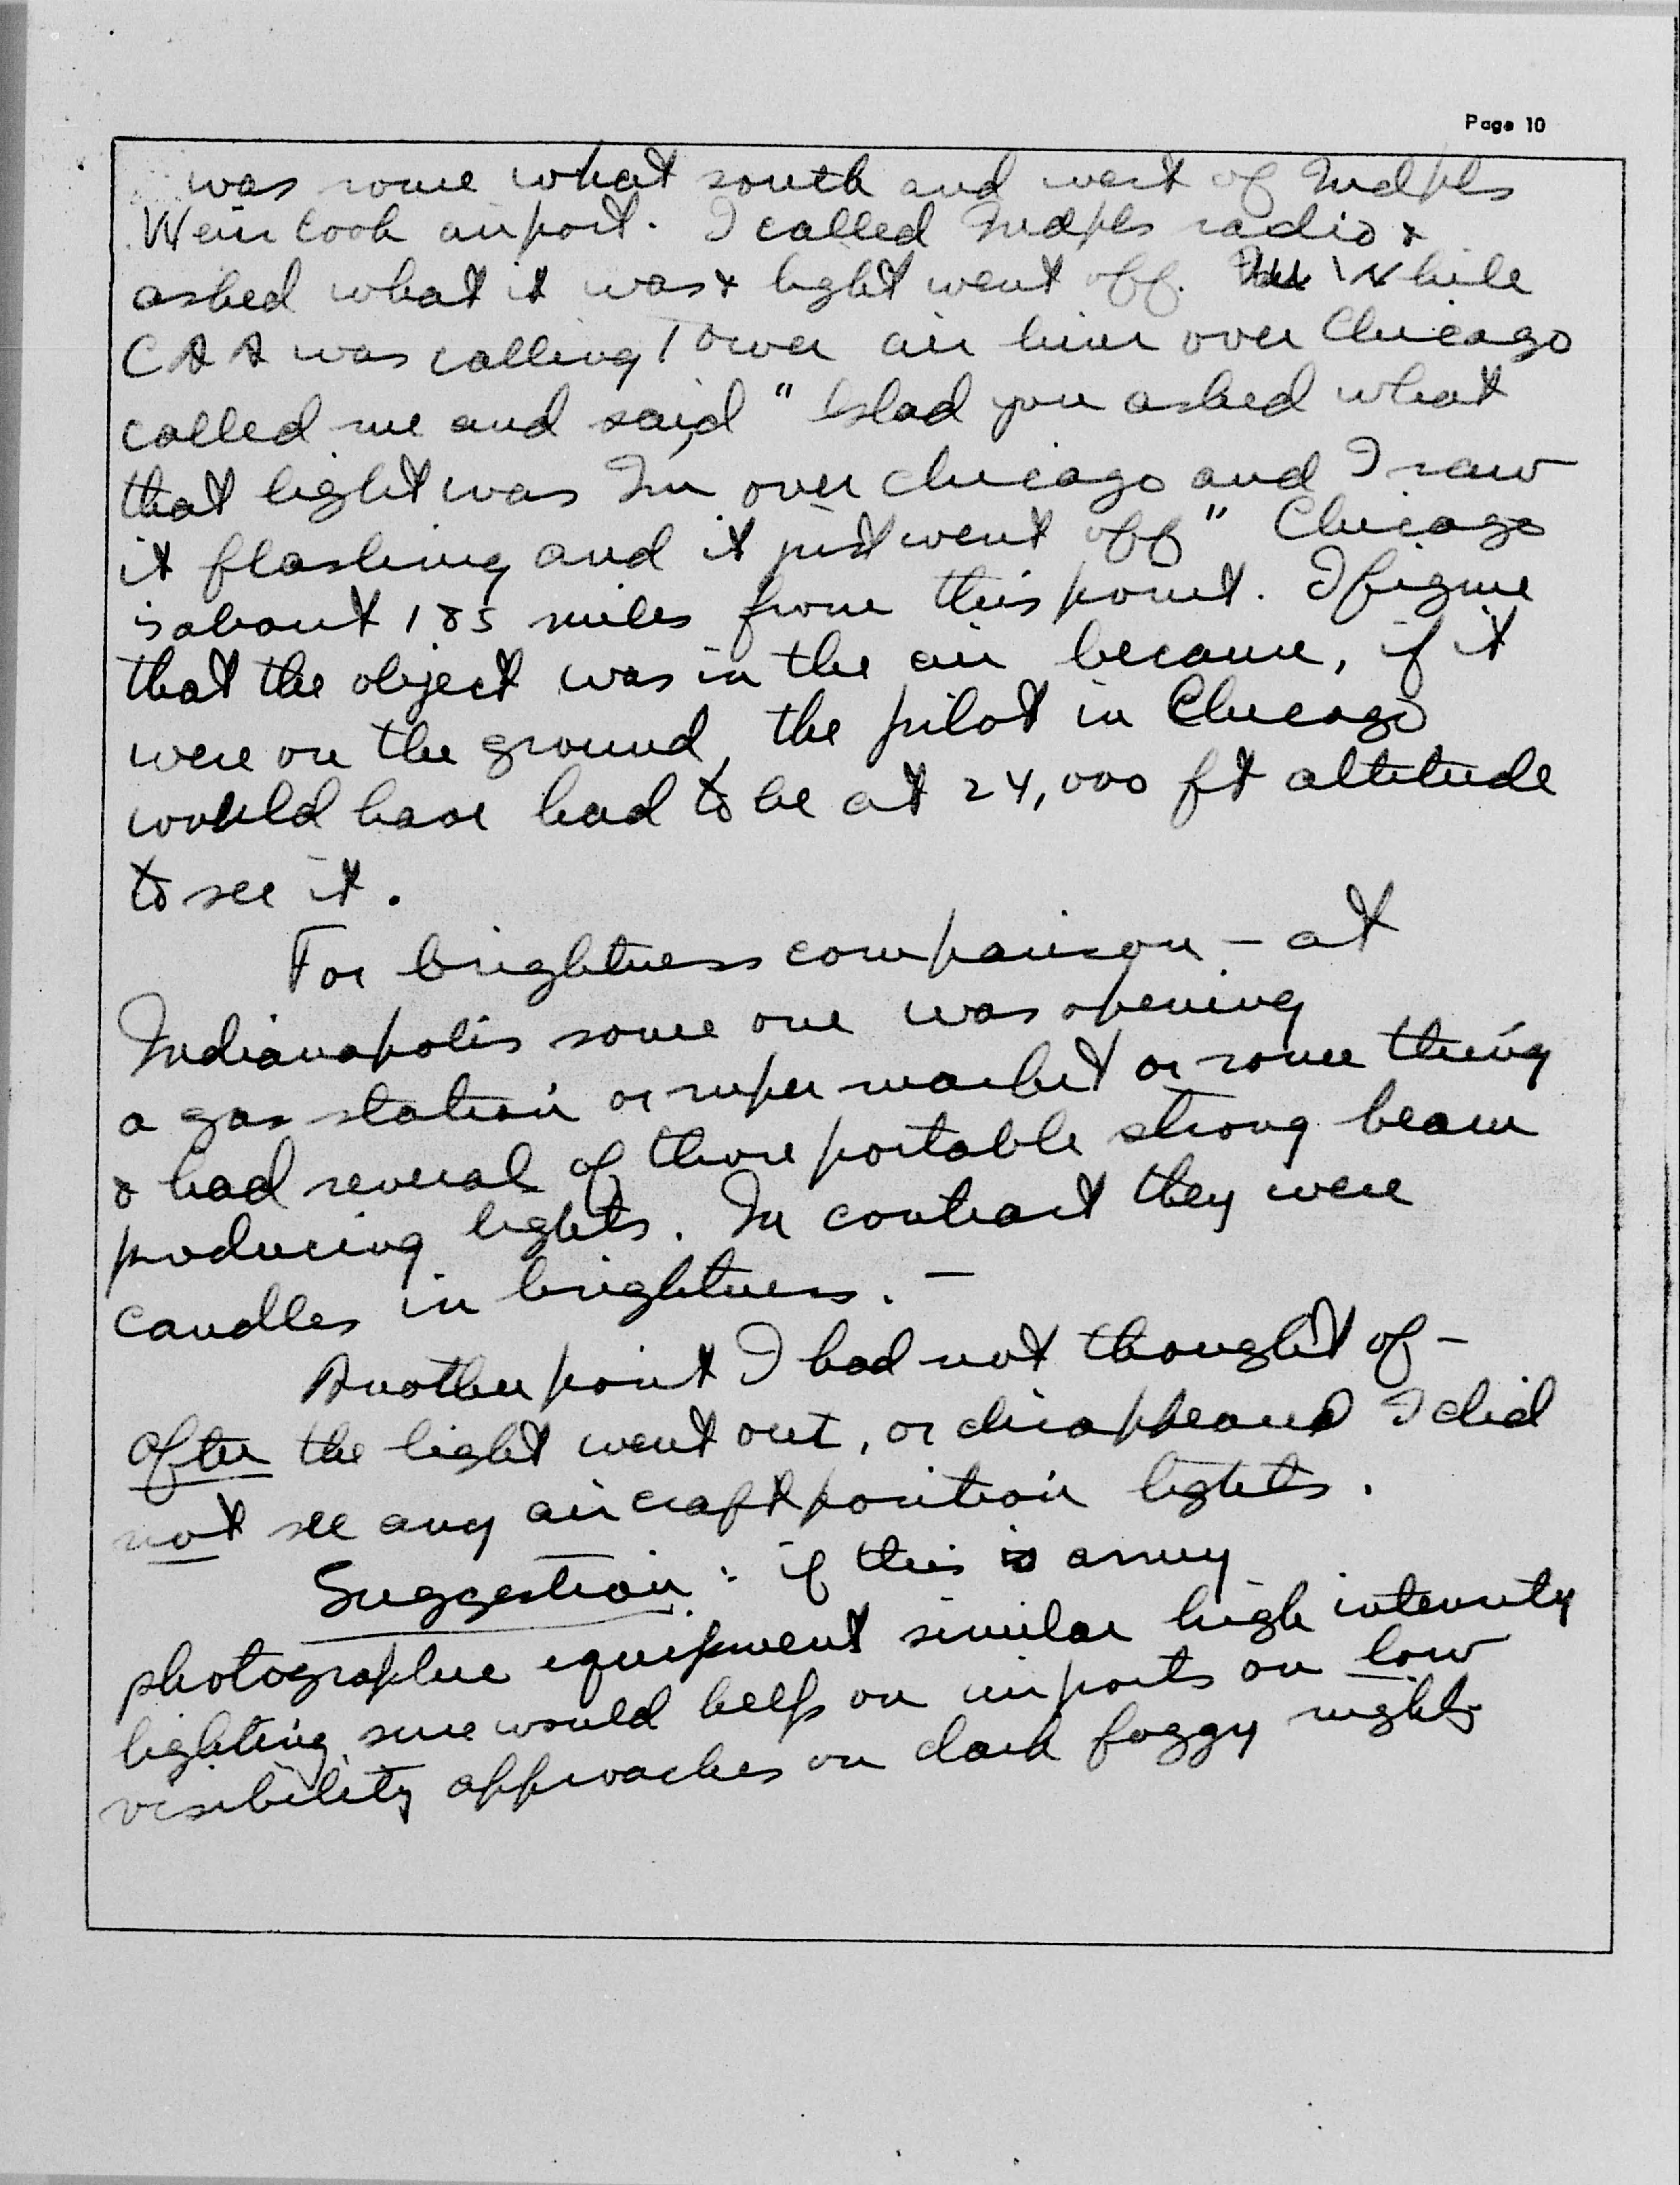 Page 10
was some what south and west of Indpls
Weir Cook airport. I called Indpls radio &
asked what it was & light went off. While
CAA was calling Tower air liner over Chicago
called me and said "Glad you asked what
that light was I'm over Chicago and I saw
it flashing and it just went off" Chicago
is about 185 miles from this point. I figure
that the object was in the air because, if it
were on the ground, the pilot in Chicago
would have had to be at 24,000 ft altitude
to see it.
For brightness comparison – at
Indianapolis some one was opening
a gas station or super market or some thing
& had several of those portable strong beam
producing lights. In contrast they were
candles in brightness. –
Another point I had not thought of –
after the light went out, or disappeared I did
not see any aircraft position lights.
Suggestion: if this is army
photographic equipment similar high intensity
lighting sure would help on airports on low
visibility approaches on dark foggy nights